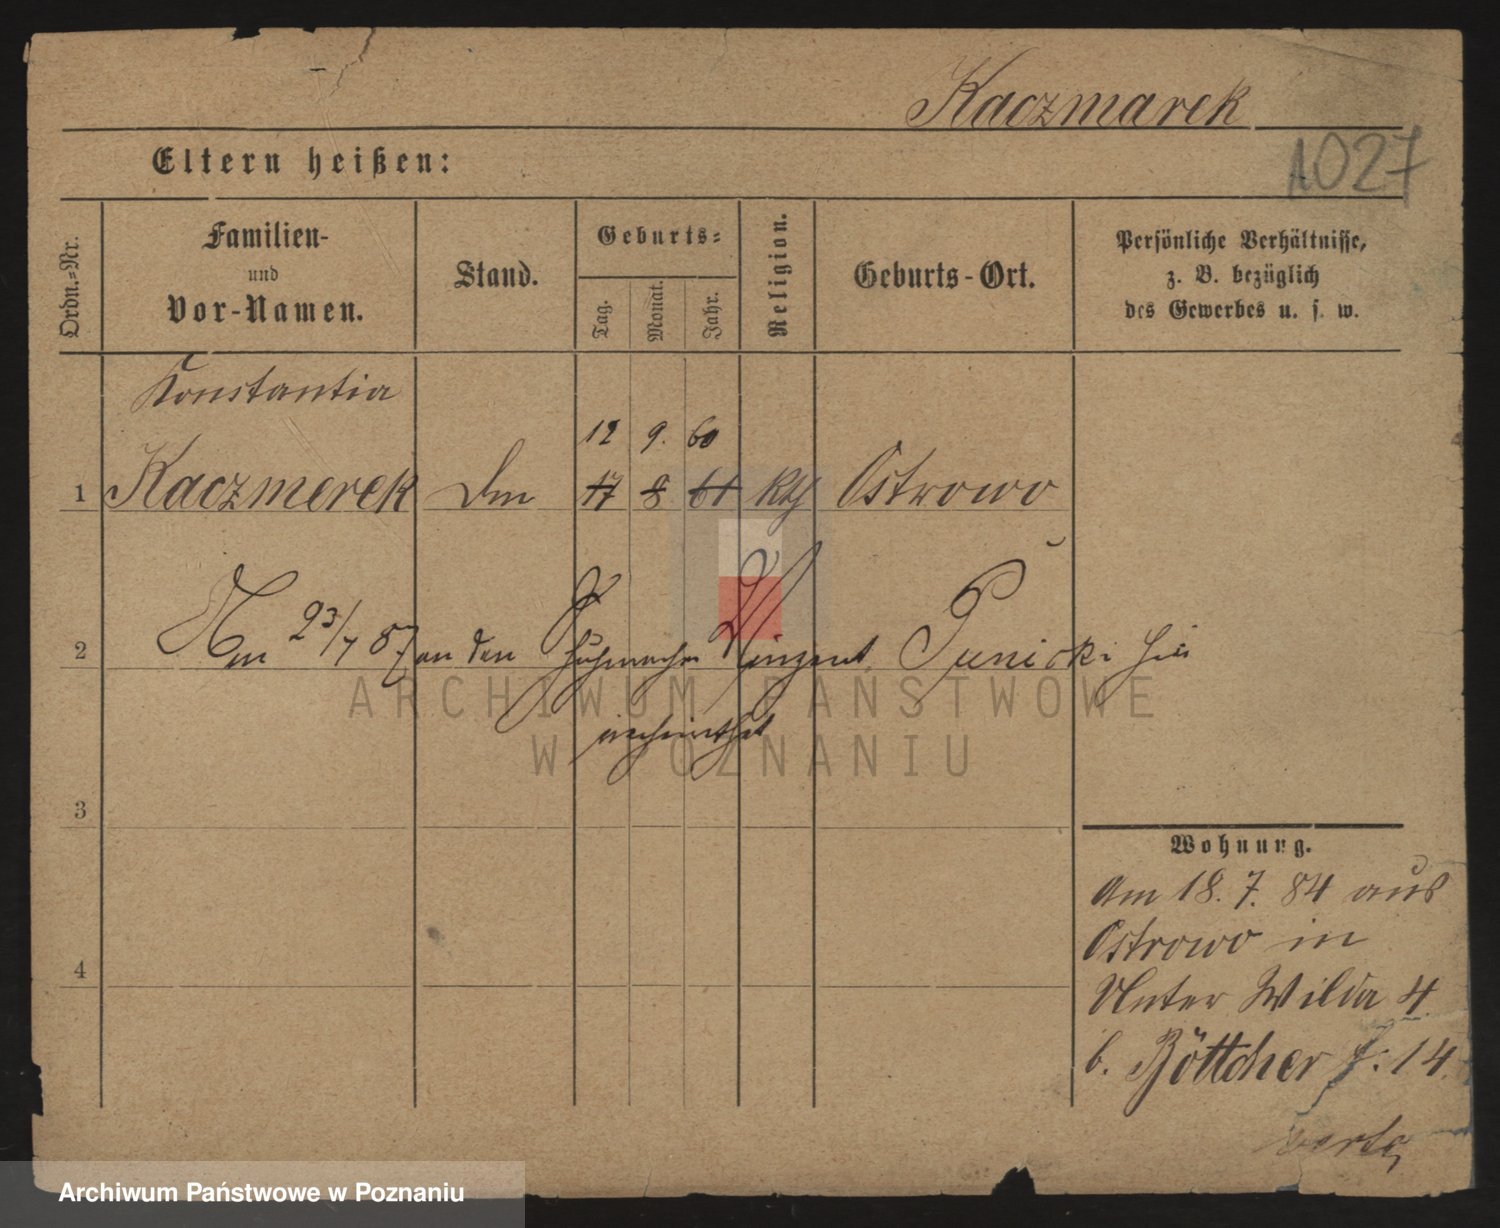 Kaczmarek
1027
Eltern heißen:
Ordn.-Nr.
Familien-
und
Vor-Namen.
Stand.
Geburts-
Tag.
Monat.
Jahr.
Religion.
Geburts-Ort.
Persönliche Verhältnisse,
z. B. bezüglich
des Gewerbes u. s. w.
Konstantia
12 9. 60
1 Kaczmerek 17 8 61 kth Ostrowo
2 Am 23/7 87 an den Schuhmacher Vinzent hier
verheirathet
3
4
Wohnung.
Am 18. 7. 84 aus
Ostrowo in
Unter Wilda 4.
b. Böttcher 14.
verte
ARCHIWUM PAŃSTWOWE
W POZNANIU
Archiwum Państwowe w Poznaniu